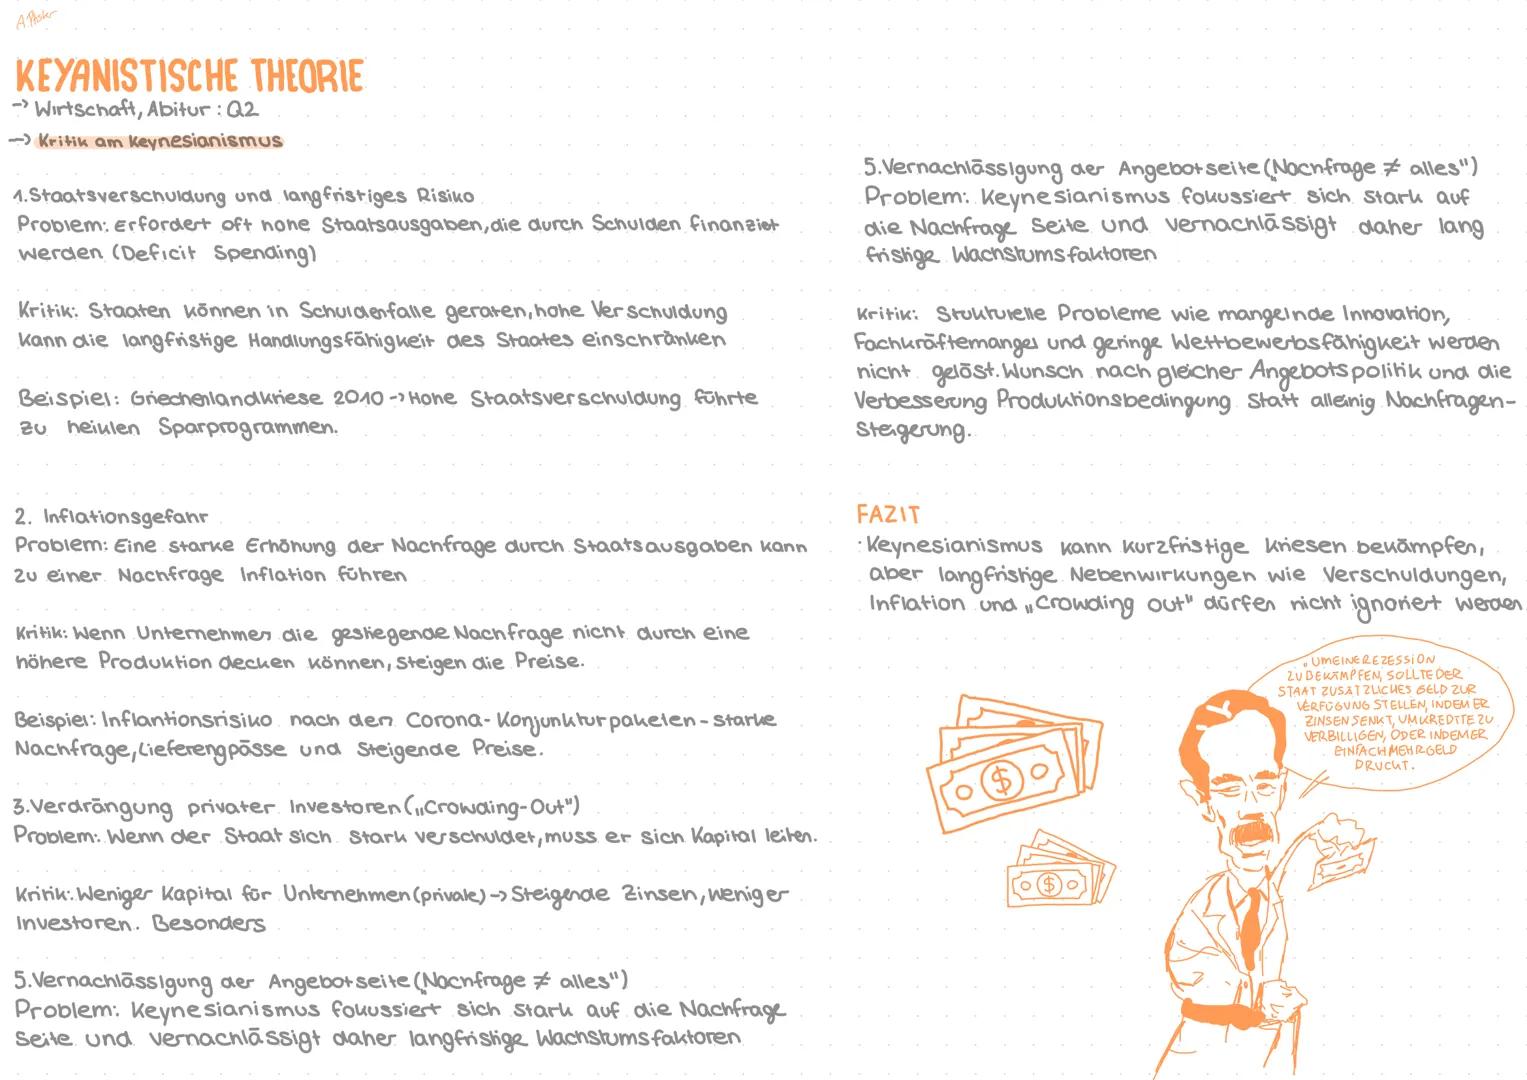 A. Pfister
KEYANISTISCHE THEORIE
-> Wirtschaft, Abitur: Q2
-> Kritik am Keynesianismus
1. Staatsverschuldung und langfristiges Risiko
Problem: Erfordert oft hohe Staatsausgaben, die durch Schulden finanziet
werden (Deficit Spending)
Kritik: Staaten können in Schuldenfalle geraten, hohe Verschuldung
kann die langfristige Handlungsfähigkeit des Staates einschränken
Beispiel: Griechenlandkriese 2010 -> Hohe Staatsverschuldung führte
zu heiklen Sparprogrammen.
2. Inflationsgefahr
Problem: Eine starke Erhöhung der Nachfrage durch Staatsausgaben kann
zu einer Nachfrage Inflation führen
Kritik: Wenn Unternehmen die gestiegende Nachfrage nicht durch eine
höhere Produktion decken können, steigen die Preise.
Beispiel: Inflantionsrisiko nach den Corona-Konjunkturpaketen - starke
Nachfrage, Lieferengpässe und steigende Preise.
3. Verdrängung privater Investoren („Crowding-Out")
Problem: Wenn der Staat sich stark verschuldet, muss er sich Kapital leihen.
Kritik: Weniger Kapital für Unternehmen (private) -> Steigende Zinsen, weniger
Investoren. Besonders
5. Vernachlässigung der Angebotseite („Nachfrage ≠ alles")
Problem: Keynesianismus fokussiert sich stark auf die Nachfrage
Seite und vernachlässigt daher langfristige Wachstumsfaktoren
5. Vernachlässigung der Angebotseite („Nachfrage ≠ alles")
Problem: Keynesianismus fokussiert sich stark auf
die Nachfrage Seite und vernachlässigt daher lang
fristige Wachstumsfaktoren
Kritik: Strukturelle Probleme wie mangelnde Innovation,
Fachkräftemangel und geringe Wettbewerbsfähigkeit werden
nicht gelöst. Wunsch nach gleicher Angebotspolitik und die
Verbesserung Produktionsbedingung statt alleinig Nachfragen-
steigerung.
FAZIT
· Keynesianismus kann kurzfristige Kriesen bekämpfen,
aber langfristige Nebenwirkungen wie Verschuldungen,
Inflation und „Crowding out" dürfen nicht ignoriert werden
„UM EINE REZESSION
ZU BEKÄMPFEN, SOLLTE DER
STAAT ZUSÄTZLICHES GELD ZUR
VERFÜGUNG STELLEN, INDEM ER
ZINSEN SENKT, UM KREDITE ZU
VERBILLIGEN, ODER INDEM ER
EINFACH MEHR GELD
DRUCKT.
$
$